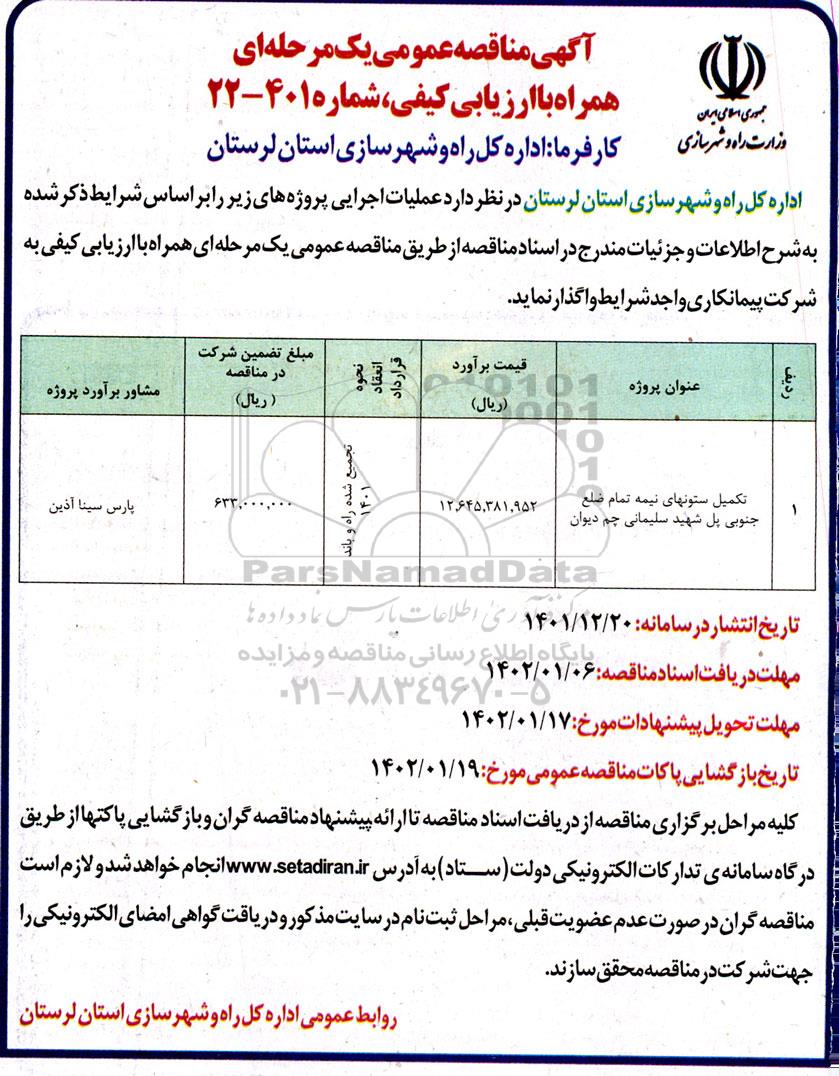 آگهی مناقصه عمومی یک مرحله‌ای
همراه با ارزیابی کیفی، شماره ۴۰۱-۲۲
کارفرما: اداره کل راه و شهرسازی استان لرستان
جمهوری اسلامی ایران
وزارت راه و شهرسازی
اداره کل راه و شهرسازی استان لرستان در نظر دارد عملیات اجرایی پروژه‌های زیر را بر اساس شرایط ذکر شده
به شرح اطلاعات و جزئیات مندرج در اسناد مناقصه از طریق مناقصه عمومی یک مرحله‌ای همراه با ارزیابی کیفی به
شرکت پیمانکاری واجد شرایط واگذار نماید.
ردیف
عنوان پروژه
قیمت برآورد
(ریال)
نحوه
انعقاد
قرارداد
مبلغ تضمین شرکت
در مناقصه
( ریال)
مشاور برآورد پروژه
۱
تکمیل ستونهای نیمه تمام ضلع
جنوبی پل شهید سلیمانی چم دیوان
۱۲,۶۴۵,۳۸۱,۹۵۲
تجمیع شده راه و باند
۱۴۰۱
۶۳۳,۰۰۰,۰۰۰
پارس سینا آذین
ParsNamadData
مرکز فرآوری اطلاعات پارس نماد داده ها
پایگاه اطلاع رسانی مناقصه و مزایده
۰۲۱-۸۸۳۴۹۶۷۰-۵
تاریخ انتشار در سامانه: ۱۴۰۱/۱۲/۲۰
مهلت دریافت اسناد مناقصه: ۱۴۰۲/۰۱/۰۶
مهلت تحویل پیشنهادات مورخ: ۱۴۰۲/۰۱/۱۷
تاریخ بازگشایی پاکات مناقصه عمومی مورخ: ۱۴۰۲/۰۱/۱۹
کلیه مراحل برگزاری مناقصه از دریافت اسناد مناقصه تا ارائه پیشنهاد مناقصه گران و بازگشایی پاکتها از طریق
درگاه سامانه‌ی تدارکات الکترونیکی دولت (ستاد) به آدرس www.setadiran.ir انجام خواهد شد و لازم است
مناقصه گران در صورت عدم عضویت قبلی، مراحل ثبت نام در سایت مذکور و دریافت گواهی امضای الکترونیکی را
جهت شرکت در مناقصه محقق سازند.
روابط عمومی اداره کل راه و شهرسازی استان لرستان